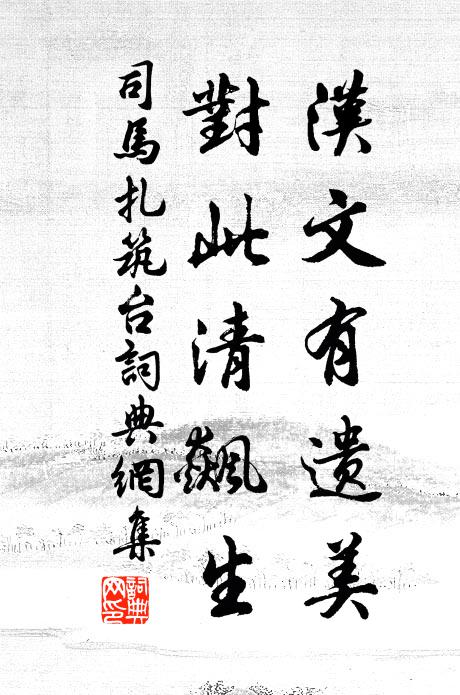 漢文有遺美
對此清飆生
司馬扎筑台詞典網集
詞典网印